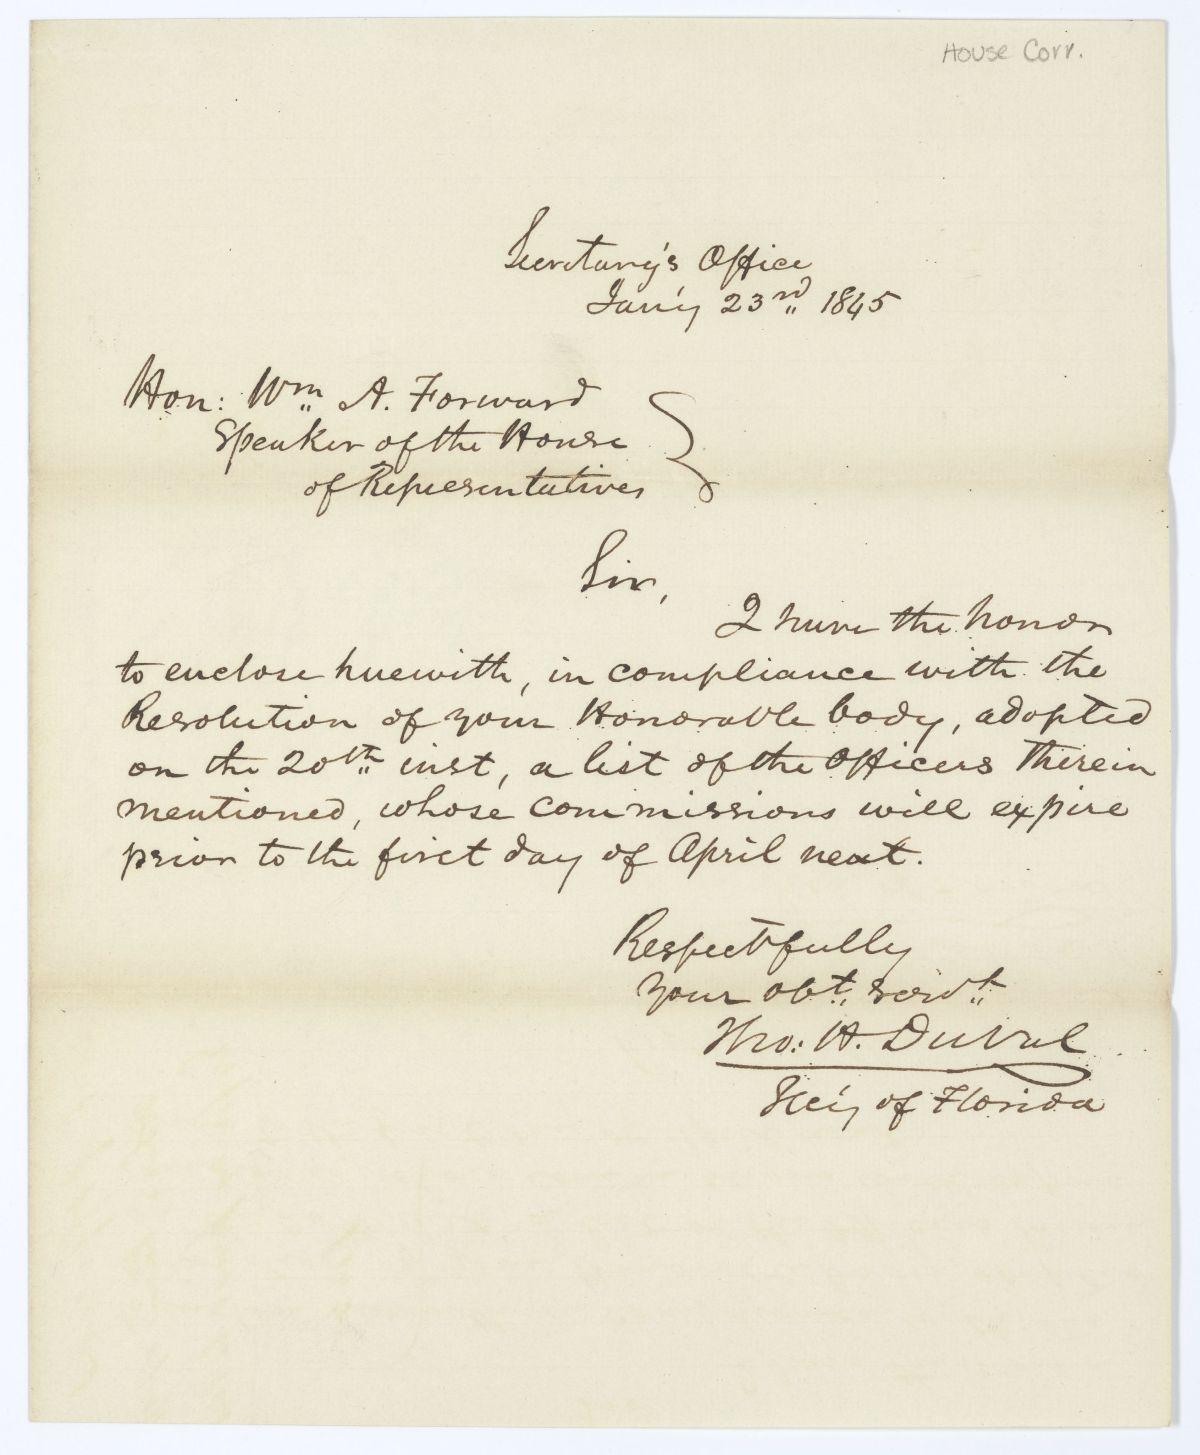 House Corr.
Secretary's Office
Jan'y 23rd 1845
Hon: Wm A. Forward
Speaker of the House
of Representatives
Sir,
I have the honor
to enclose herewith, in compliance with the
Resolution of your Honorable body, adopted
on the 20th inst, a list of the Officers therein
mentioned, whose commissions will expire
prior to the first day of April next.
Respectfully
Your obt. servt.
Tho: H. DuVal
Sec'y of Florida